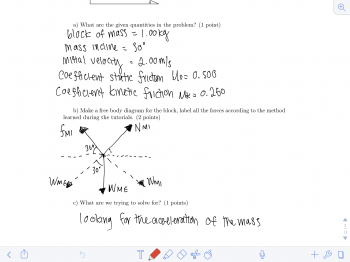 a) What are the given quantities in the problem? (1 point)
block of mass = 1.00kg
mass incline = 30°
initial velocity = 2.00 m/s
Coefficient static friction μs = 0.500
Coefficient kinetic friction μk = 0.250
b) Make a free body diagram for the block, label all the forces according to the method
learned during the tutorials. (2 points)
fMI
NMI
30°
30°
WME
WME
c) What are we trying to solve for? (1 points)
looking for the acceleration of the mass